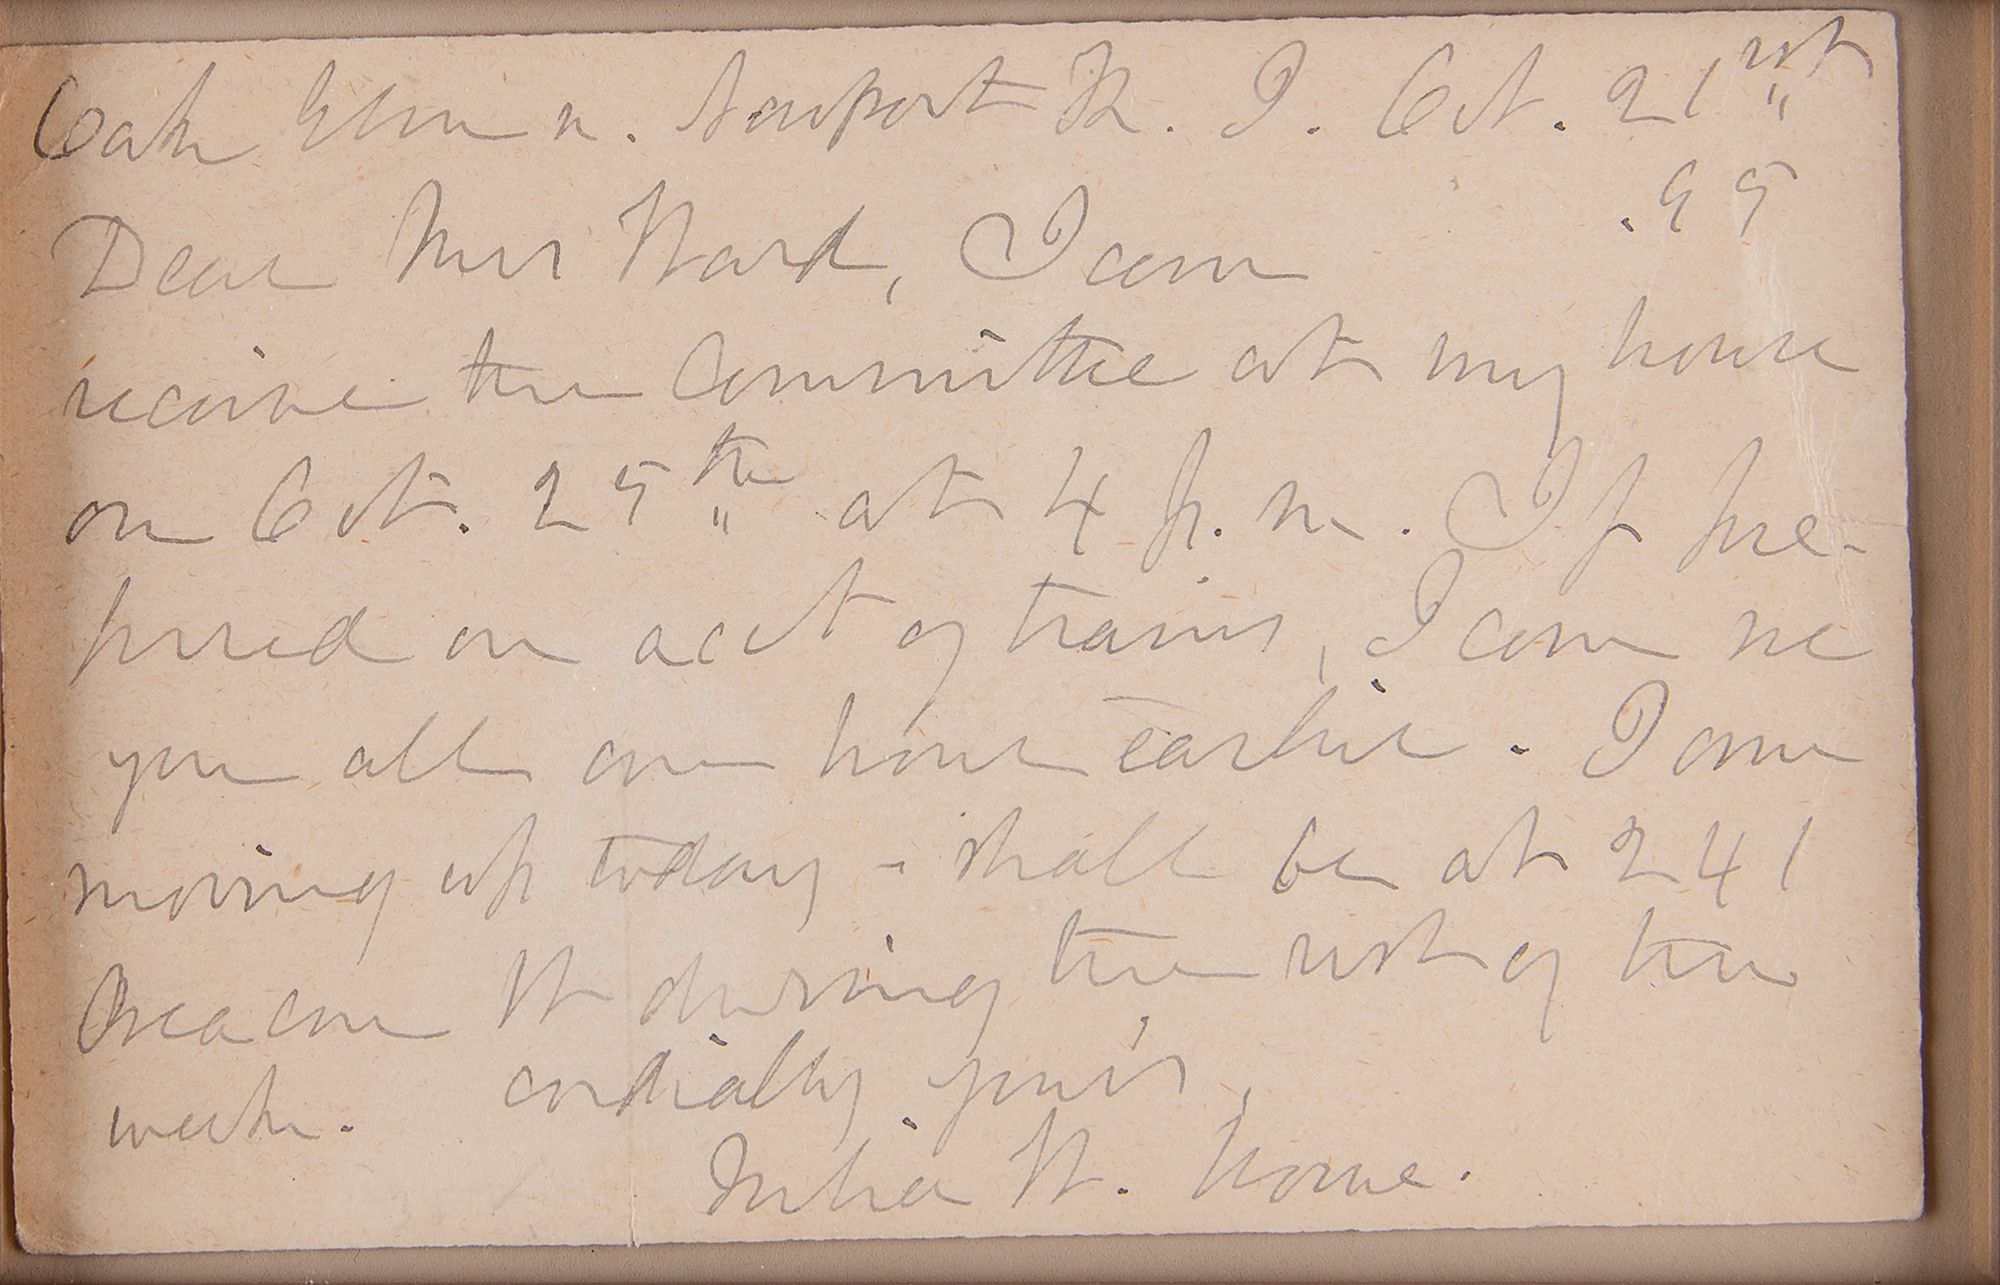 Oak Glen n. Newport R. I. Oct. 21rst
.95
Dear Mrs Ward, I can
receive the Committee at my house
on Oct. 25th at 4 p. m. If pre-
ferred on acct of trains, I can see
you all one hour earlier. I am
moving up today - shall be at 241
Beacon St during the rest of the
week. cordially your's,
Julia W. Howe.